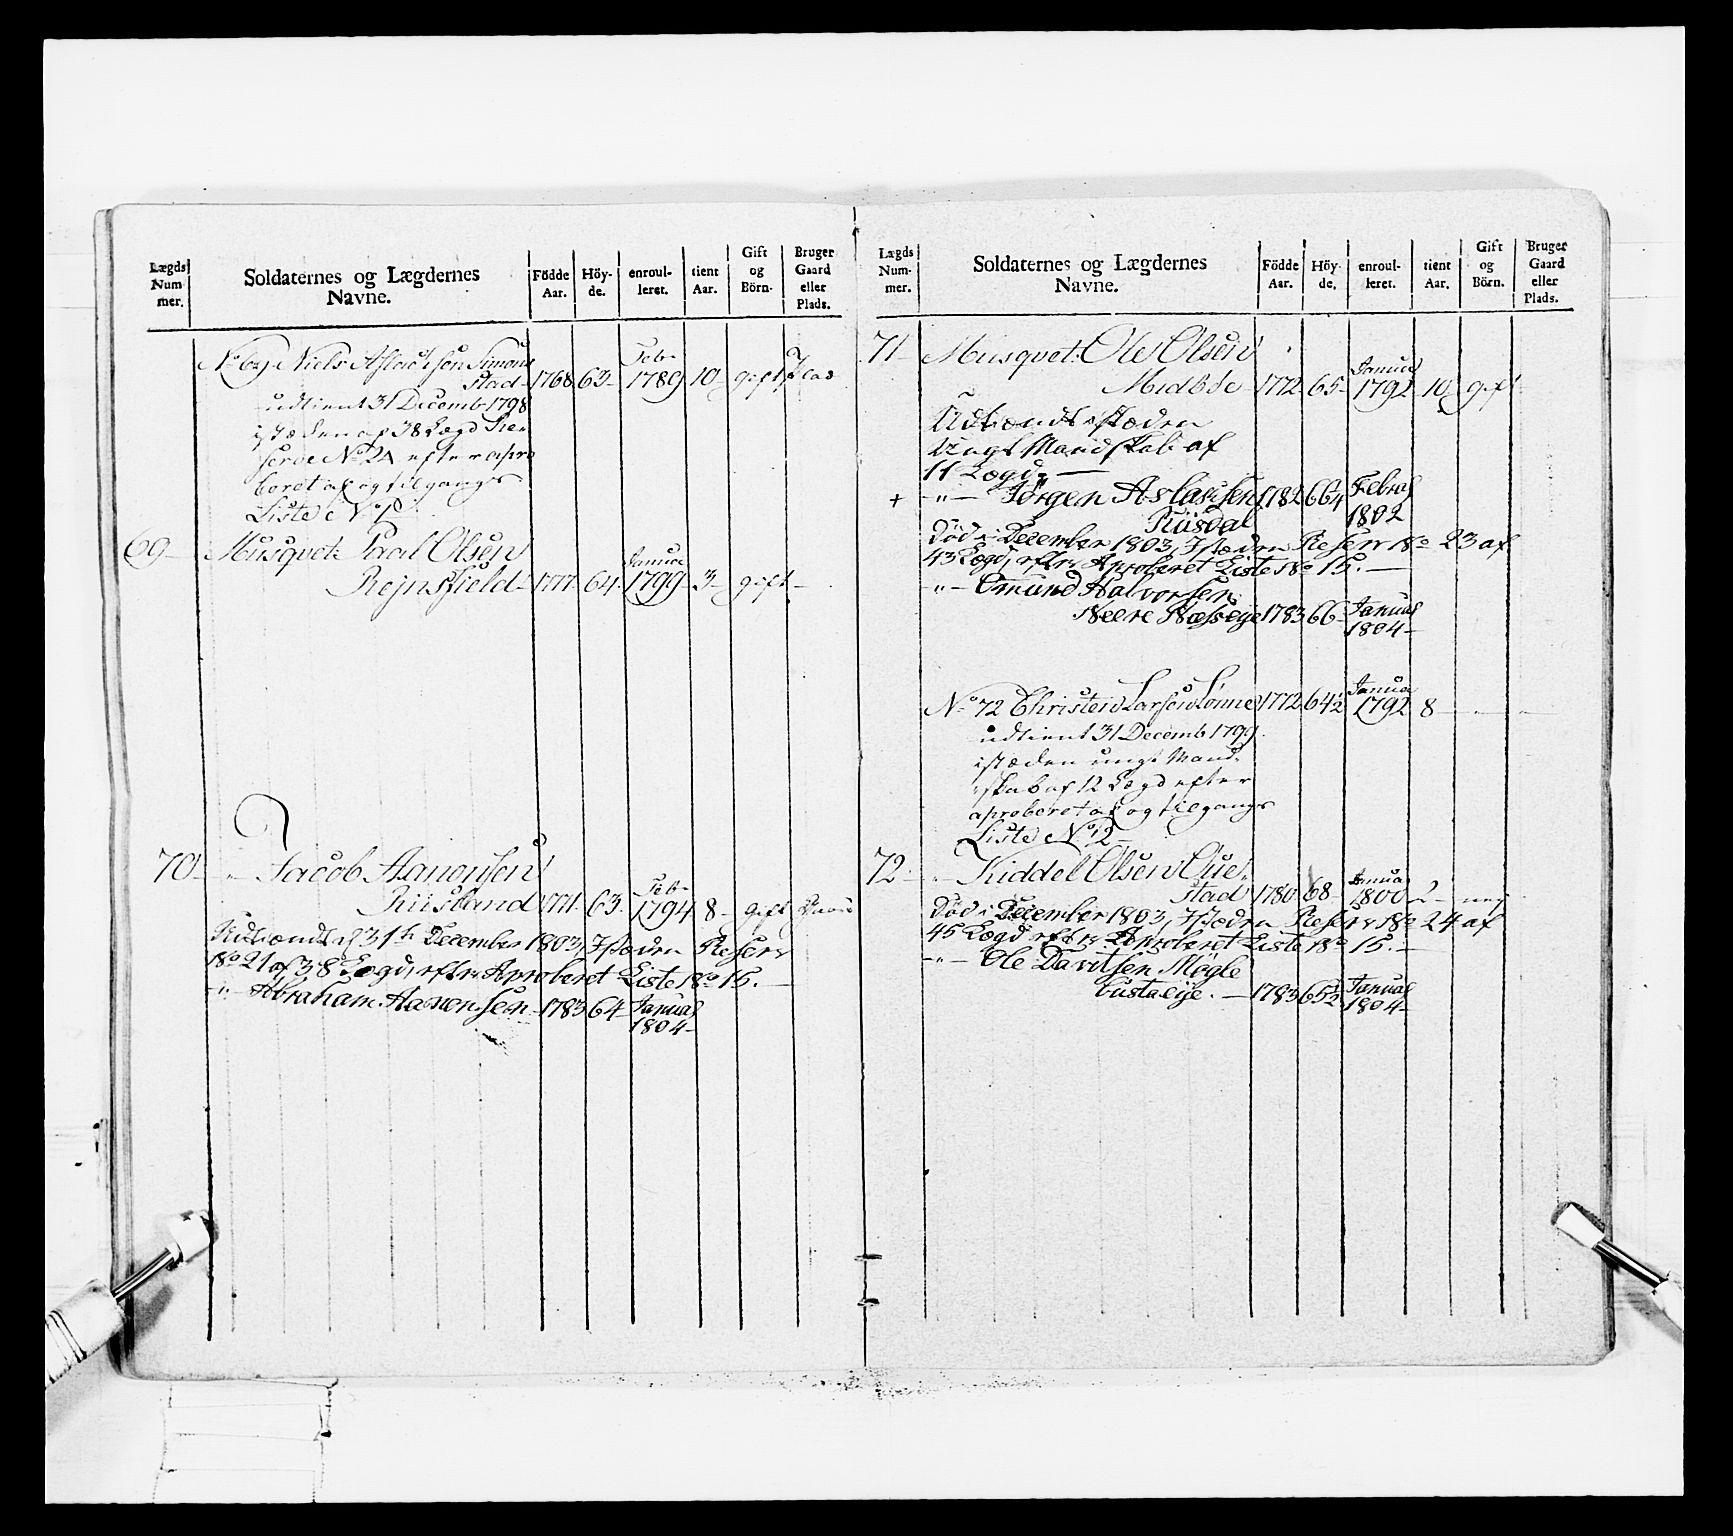 Lægds Num- mer. Soldaternes og Lægdernes Navne. Födde Aar. Höy- de. enroul- leret. tient Aar. Gift og Börn. Bruger Gaard eller Plads.
No 69 Niels Aslachsen Simons
stad 1768 63 Feb. 1789 10 gift Plads
udtient 31 Decemb 1798
istæden af 38 Lægd Re-
serve No 24 efter apro
beret af og tilgangs
Liste No
69 Musqvet: Paal Olsen
Rejnsfield 1777 64 Januar 1799 3 gift
70 " Jacob Aanonsen
Riisland 1771 63 Feb. 1794 8 gift
31th December 1803, Istæden Reserv
No 21 af 38 Lægd, efter Aproberet Liste No 15.
" Abraham Aanonsen 1783 64 Januar
1804
Lægds Num- mer. Soldaternes og Lægdernes Navne. Födde Aar. Höy- de. enroul- leret. tient Aar. Gift og Börn. Bruger Gaard eller Plads.
71 Musqvet: Ole Olsen
Midböe 1772 65 Januar 1792 10 gift
Udtiændt istæden
Ungt Mandskab af
11 Lægd
+ " Jørgen Aslaksen 1782 66¼ Februar
Riisdal 1802
Død i December 1803, Istæden Reserv No 23 af
43 Lægd, efter Aproberet Liste No 15.
" Omund Halvorsen
Neere Næss eye 1783 66 Januar
1804
No 72 Christen Larsen Lønne 1772 64½ Januar 1792 8
udtient 31 Decemb 1799
istæden ungt Mand-
skab af 12 Lægd efter
aproberet af og tilgangs
Liste No 12
72 " Kiddel Olsen Oue-
stad 1780 68 Januar 1800 2 ney
Død i December 1803, Istæden Reserv No 24 af
45 Lægd efter Aproberet Liste No 15.
" Ole Davitsen Møgle
bustaeye. 1783 65½ Januar
1804